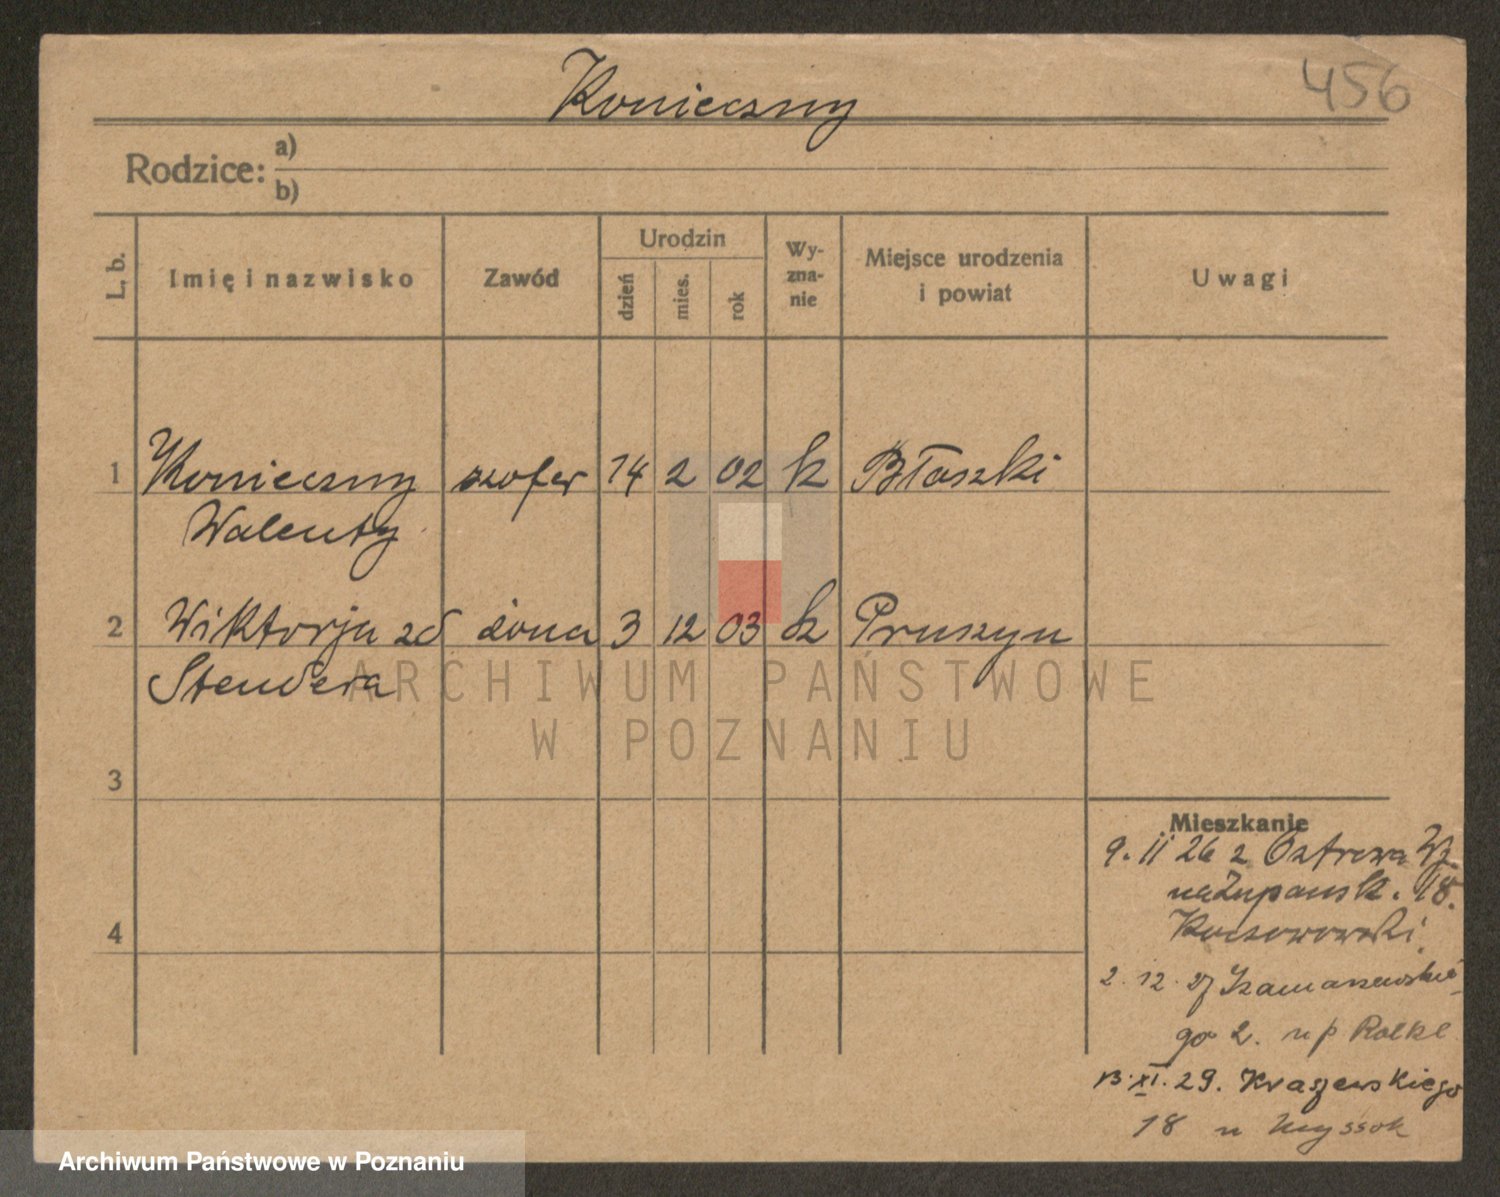 456
Konieczny
Rodzice: a)
b)
L. b.
Imię i nazwisko
Zawód
Urodzin
dzień
mies.
rok
Wy-
zna-
nie
Miejsce urodzenia
i powiat
Uwagi
1 Konieczny szofer 14 2 02 k Błaszki
Walenty
2 Wiktorja zd żona 3 12 03 k Pruszyn
Stendera
3
4
Mieszkanie
9. 11 26 z Ostrowa
18.
2. 12. 27
go 2. u p
13. XI. 29. Kraszewskiego
18 u
ARCHIWUM PAŃSTWOWE
W POZNANIU
Archiwum Państwowe w Poznaniu